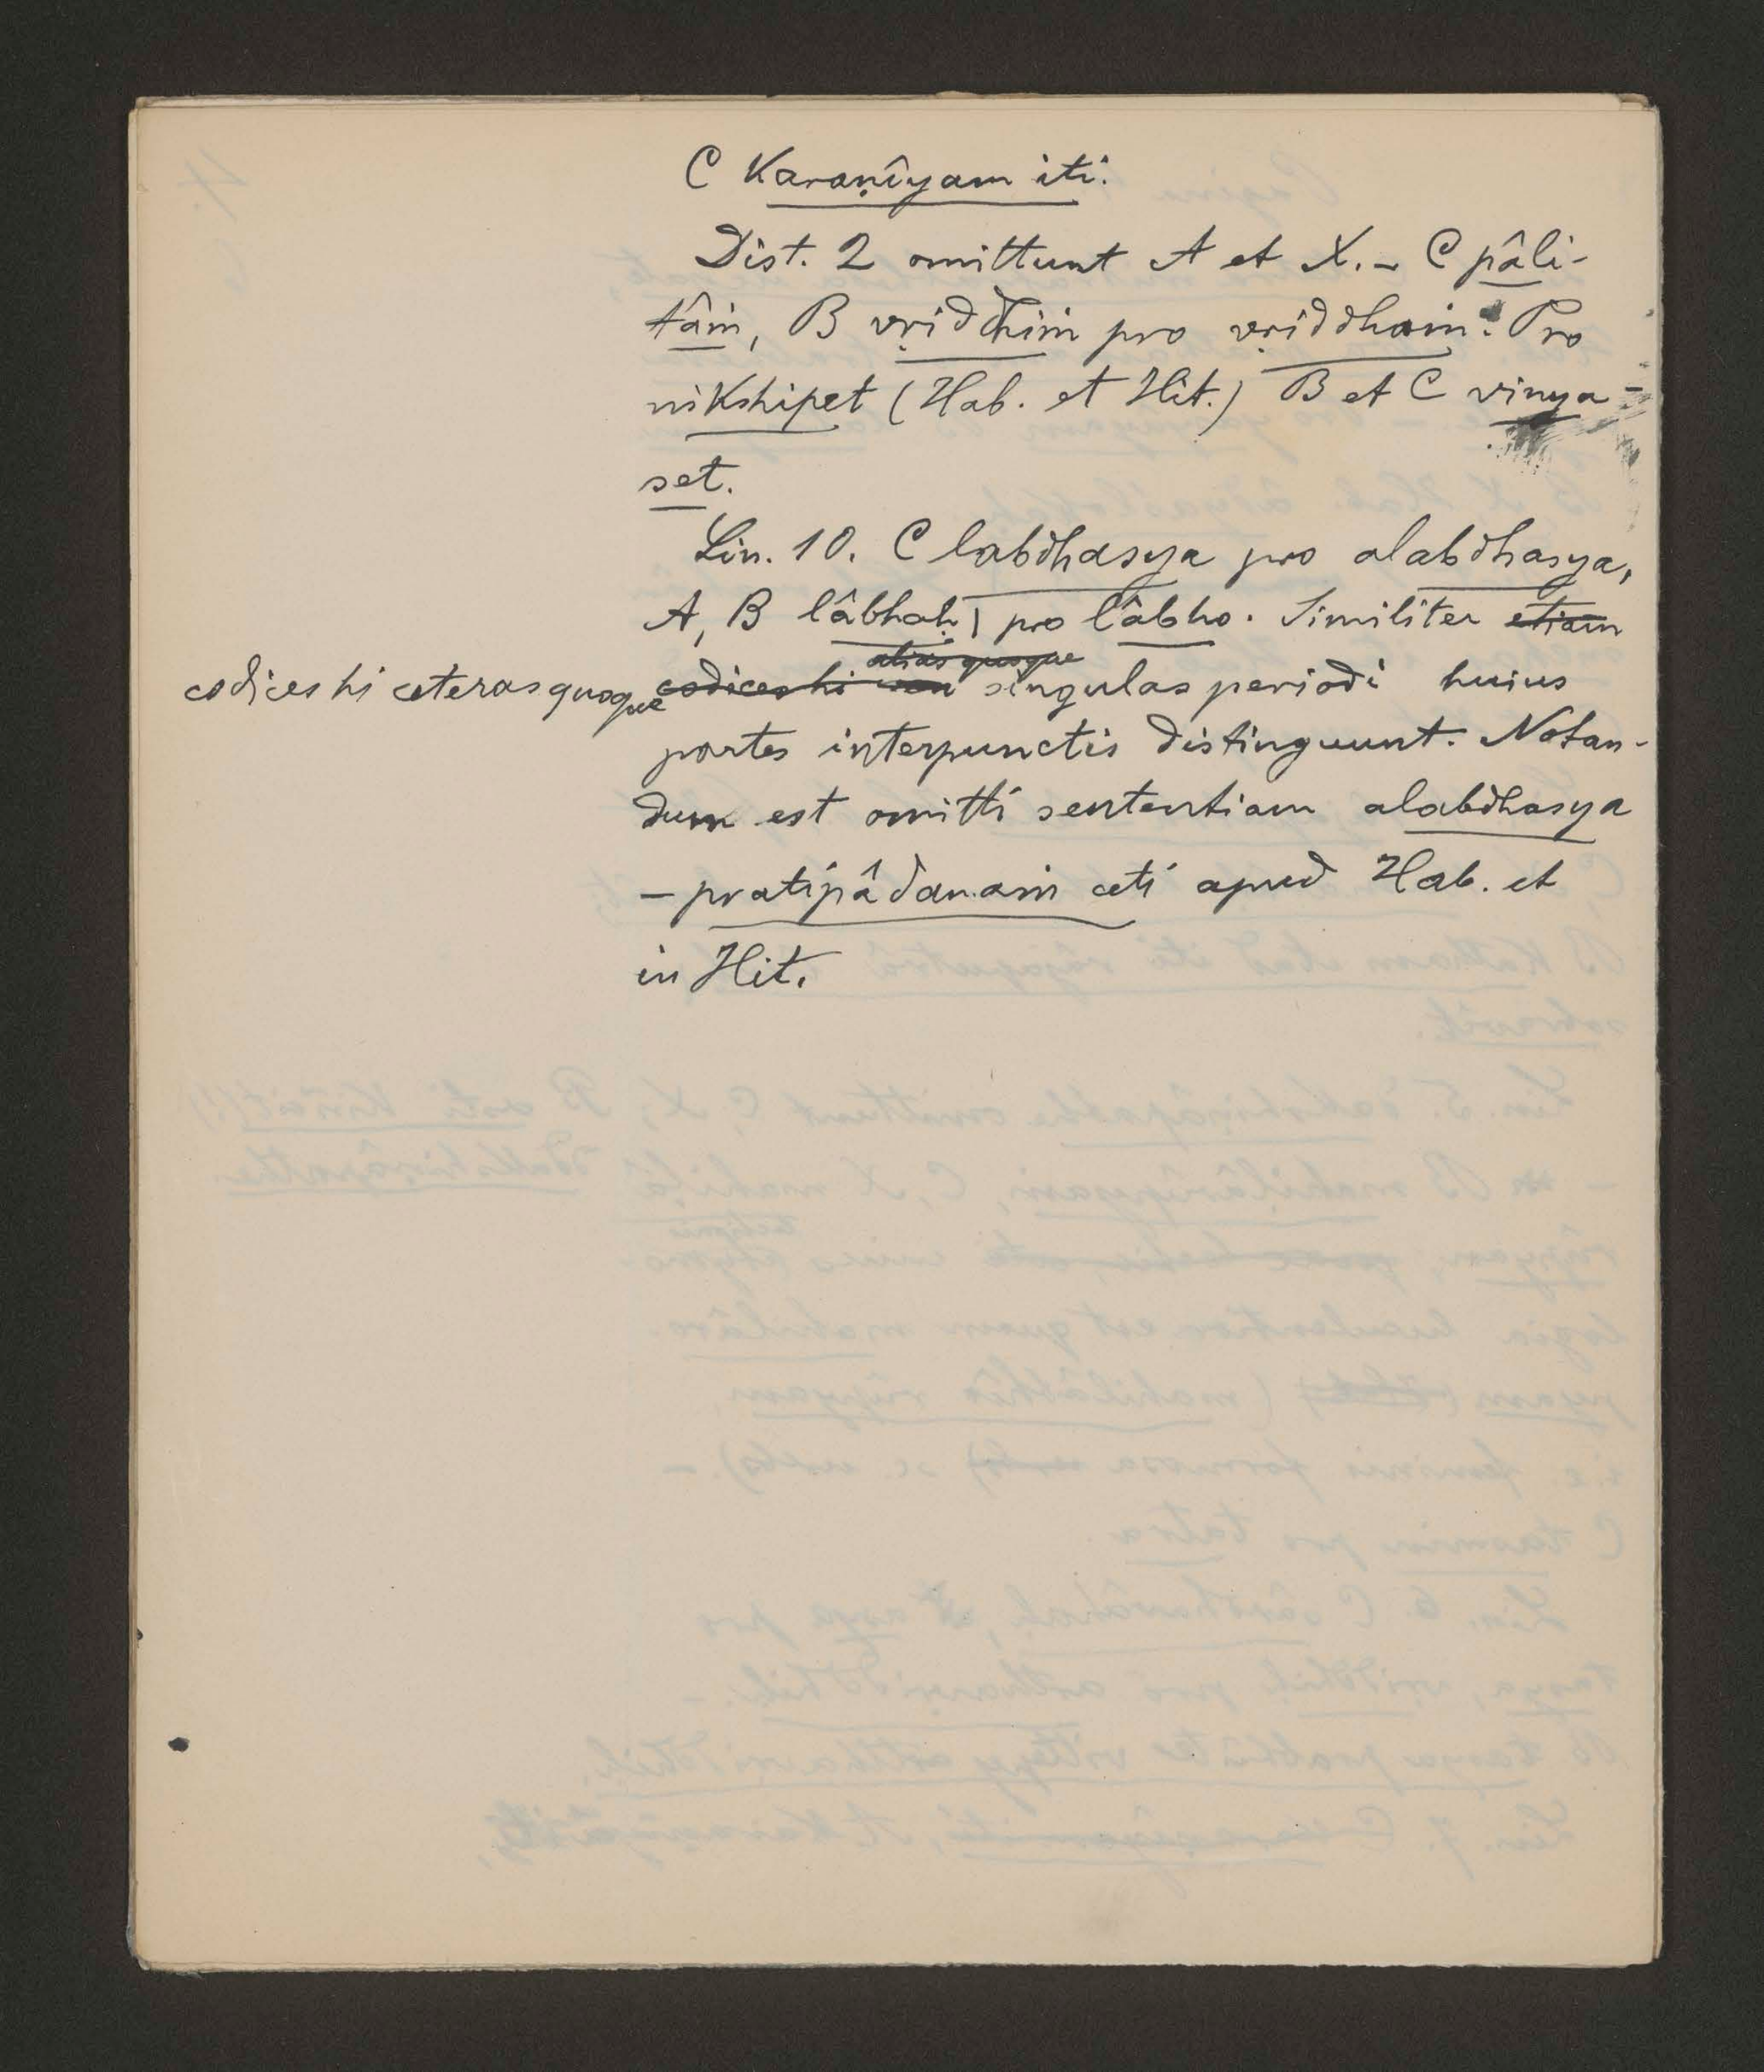 C Karaṇîyam iti.
Dist. 2 omittunt A et X. – C pâli-
tâṁ, B vṛiddhiṁ pro vṛiddhaṁ. Pro
nikshipet (Hab. et Hit.) B et C vinya-
set.
Lin. 10. C labdhasya pro alabdhasya,
A, B lâbhaḥ | pro lâbho. Similiter etiam
alias quoque
codices hi ceteras quoque codices hi singulas periodi huius
partes interpunctis distinguunt. Notan-
dum est omitti sententiam alabdhasya
– pratipâdanaṁ ceti apud Hab. et
in Hit.